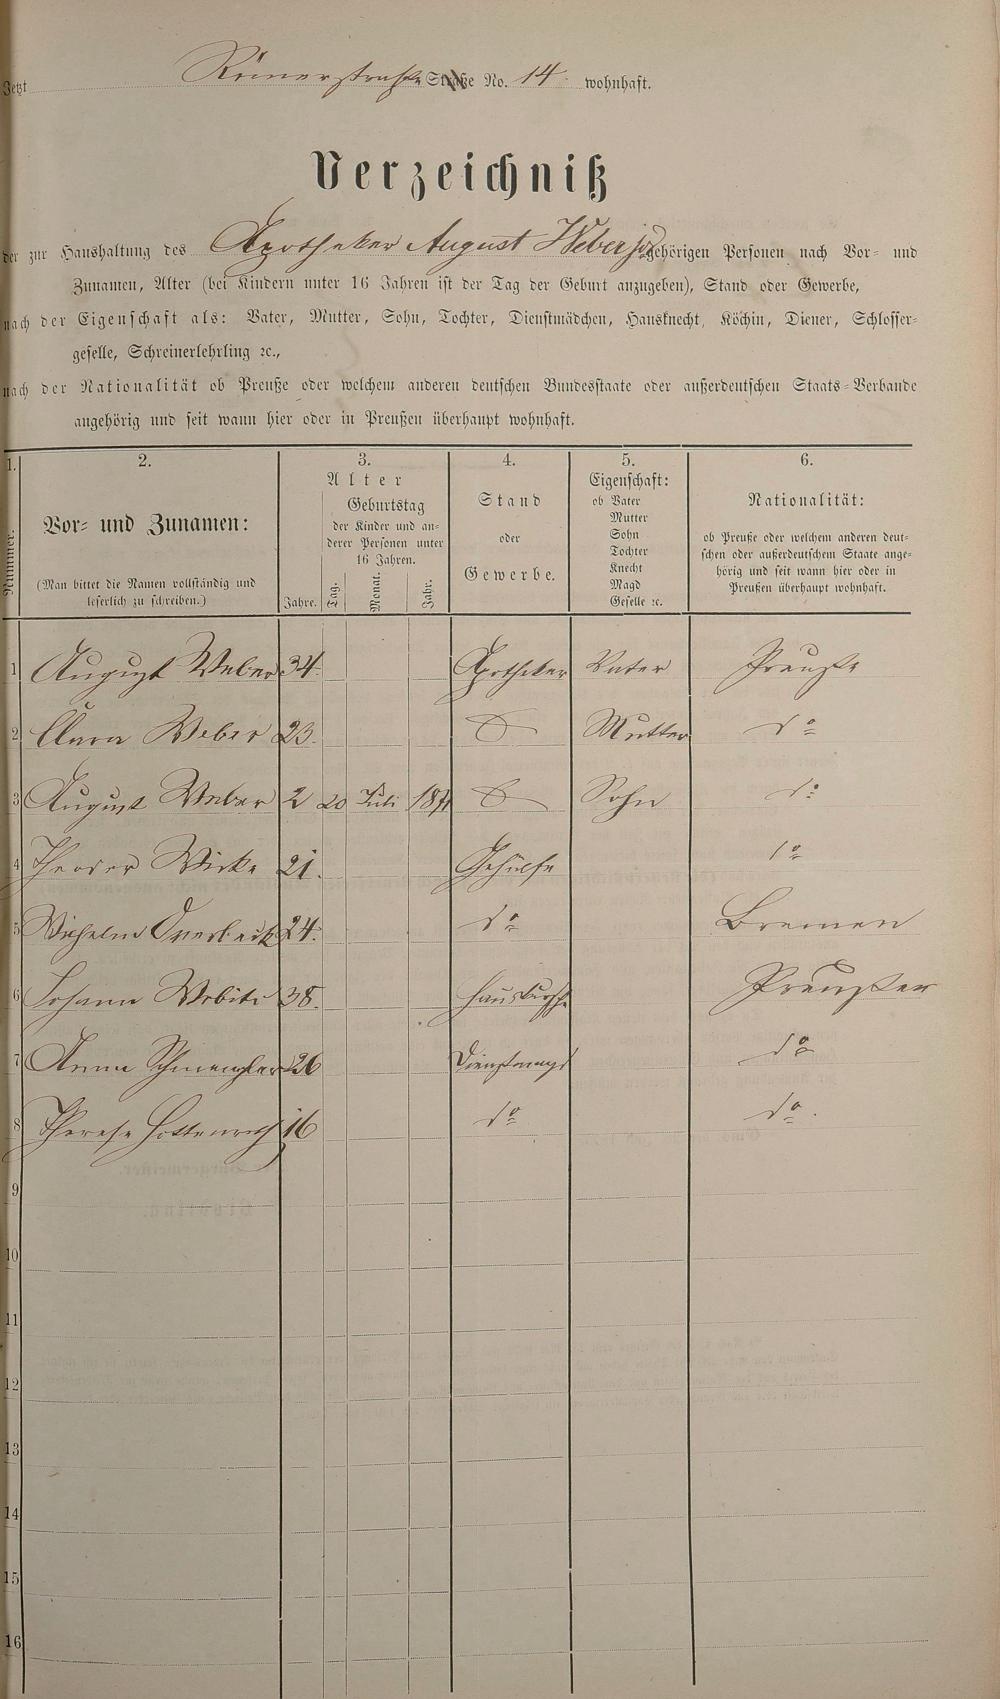 Jetzt Römerstraße Straße No. 14. wohnhaft.
Verzeichniß
der zur Haushaltung des Apotheker August Weber jr gehörigen Personen nach Vor- und
Zunamen, Alter (bei Kindern unter 16 Jahren ist der Tag der Geburt anzugeben), Stand oder Gewerbe,
nach der Eigenschaft als: Vater, Mutter, Sohn, Tochter, Dienstmädchen, Hausknecht, Köchin, Diener, Schlosser-
geselle, Schreinerlehrling ꝛc.,
nach der Nationalität ob Preuße oder welchem anderen deutschen Bundesstaate oder außerdeutschen Staats-Verbande
angehörig und seit wann hier oder in Preußen überhaupt wohnhaft.
1. 2. 3. 4. 5. 6.
Nummer.
Vor- und Zunamen:
(Man bittet die Namen vollständig und
leserlich zu schreiben.)
Alter
Jahre.
Geburtstag
der Kinder und an-
derer Personen unter
16 Jahren.
Tag. Monat. Jahr.
Stand
oder
Gewerbe.
Eigenschaft:
ob Vater
Mutter
Sohn
Tochter
Knecht
Magd
Geselle ꝛc.
Nationalität:
ob Preuße oder welchem anderen deut-
schen oder außerdeutschem Staate ange-
hörig und seit wann hier oder in
Preußen überhaupt wohnhaft.
1 August Weber 34. Apotheker Vater Preuße
2 Clara Weber 23. Mutter do
3 August Weber 2 20 Juli 1871 Sohn do
4 Theodor 21. Gehülfe do
5 Wilhelm Overbeck 24. do Bremen
6 Johann 38. Hausbursche Preußen
7 Anna 26 Dienstmagd do
8 Therese Hottenroth 16 do do.
9
10
11
12
13
14
15
16